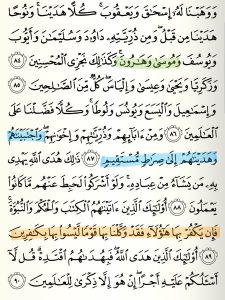 وَوَهَبْنَا لَهُۥٓ إِسْحَٰقَ وَيَعْقُوبَ ۚ كُلًّا هَدَيْنَا ۚ وَنُوحًا
هَدَيْنَا مِن قَبْلُ ۖ وَمِن ذُرِّيَّتِهِۦ دَاوُۥدَ وَسُلَيْمَٰنَ وَأَيُّوبَ
وَيُوسُفَ وَمُوسَىٰ وَهَٰرُونَ ۚ وَكَذَٰلِكَ نَجْزِى ٱلْمُحْسِنِينَ ٨٤
وَزَكَرِيَّا وَيَحْيَىٰ وَعِيسَىٰ وَإِلْيَاسَ ۖ كُلٌّ مِّنَ ٱلصَّٰلِحِينَ ٨٥
وَإِسْمَٰعِيلَ وَٱلْيَسَعَ وَيُونُسَ وَلُوطًا ۚ وَكُلًّا فَضَّلْنَا عَلَى
ٱلْعَٰلَمِينَ ٨٦ وَمِنْ ءَابَآئِهِمْ وَذُرِّيَّٰتِهِمْ وَإِخْوَٰنِهِمْ ۖ وَٱجْتَبَيْنَٰهُمْ
وَهَدَيْنَٰهُمْ إِلَىٰ صِرَٰطٍ مُّسْتَقِيمٍ ٨٧ ذَٰلِكَ هُدَى ٱللَّهِ يَهْدِى
بِهِۦ مَن يَشَآءُ مِنْ عِبَادِهِۦ ۚ وَلَوْ أَشْرَكُوا۟ لَحَبِطَ عَنْهُم مَّا كَانُوا۟
يَعْمَلُونَ ٨٨ أُو۟لَٰٓئِكَ ٱلَّذِينَ ءَاتَيْنَٰهُمُ ٱلْكِتَٰبَ وَٱلْحُكْمَ وَٱلنُّبُوَّةَ ۚ
فَإِن يَكْفُرْ بِهَا هَٰٓؤُلَآءِ فَقَدْ وَكَّلْنَا بِهَا قَوْمًا لَّيْسُوا۟ بِهَا بِكَٰفِرِينَ
٨٩ أُو۟لَٰٓئِكَ ٱلَّذِينَ هَدَى ٱللَّهُ ۖ فَبِهُدَىٰهُمُ ٱقْتَدِهْ ۗ قُل لَّآ
أَسْـَٔلُكُمْ عَلَيْهِ أَجْرًا ۖ إِنْ هُوَ إِلَّا ذِكْرَىٰ لِلْعَٰلَمِينَ ٩٠